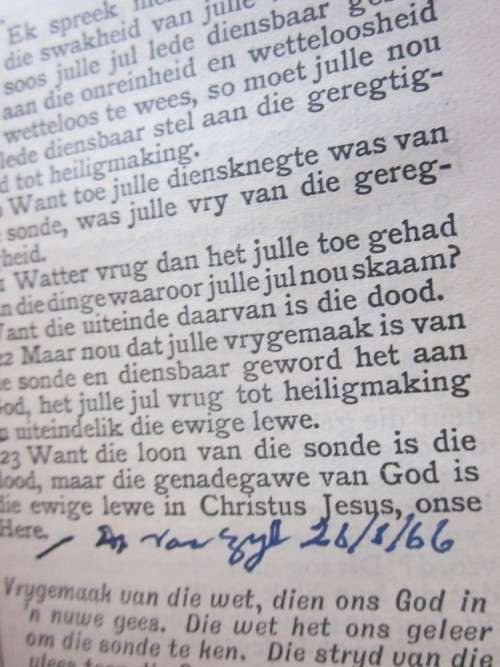 Ek spreek
die swakheid van julle
soos julle jul lede diensbaar
aan die onreinheid en wetteloosheid
wetteloos te wees, so moet julle nou
lede diensbaar stel aan die geregtig-
d tot heiligmaking.
Want toe julle diensknegte was van
sonde, was julle vry van die gereg-
heid.
Watter vrug dan het julle toe gehad
n die dinge waaroor julle jul nou skaam?
ant die uiteinde daarvan is die dood.
22 Maar nou dat julle vrygemaak is van
e sonde en diensbaar geword het aan
od, het julle jul vrug tot heiligmaking
uiteindelik die ewige lewe.
23 Want die loon van die sonde is die
lood, maar die genadegawe van God is
die ewige lewe in Christus Jesus, onse
Here.
van Zyl 26/8/66
Vrygemaak van die wet, dien ons God in
'n nuwe gees. Die wet het ons geleer
om die sonde te ken. Die stryd van die